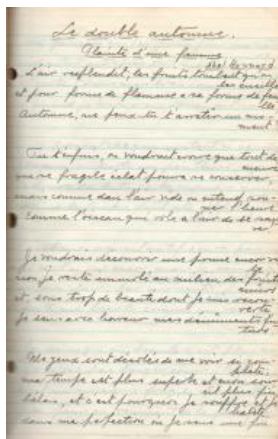 Le double automne.
Plainte d'une femme
Abel Bonnard
L'air resplendit, les fruits tombent qui
les cueille
et pour forme de flamme a sa forme de feu
ille
Automne, ne peux-tu t'arrêter un mo
ment
Tu t'enfuis, on voudrait croire que tout de
meure
un si fragile éclat pourra se conserver
mais comme dans l'air vide on entend son
ner l'heure
Comme l'oiseau qui vole a l'air de se sau
ver
Je voudrais découvrir une forme encor
non je reste immobile au milieu des fruits
murs
et sous trop de beauté dont je suis recou
verte
je sens avec horreur mes dénûments fu
turs
Mes yeux sont désolés de me voir si com
plète
ma temps est plus superbe et mon
est plus fin
hélas, et c'est pourquoi je souffre et je
halète
dans ma perfection où je sens une fin